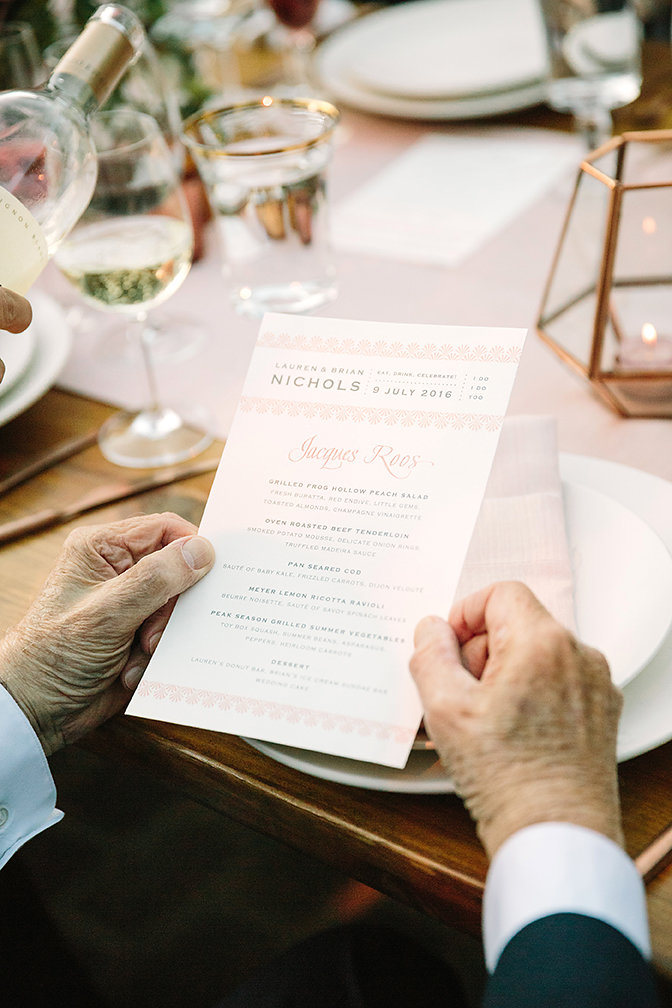 LAUREN & BRIAN
NICHOLS
EAT, DRINK, CELEBRATE!
9 JULY 2016
I DO
I DO
TOO
Jacques Roos
GRILLED FROG HOLLOW PEACH SALAD
FRESH BURATTA, RED ENDIVE, LITTLE GEMS,
TOASTED ALMONDS, CHAMPAGNE VINAIGRETTE
OVEN ROASTED BEEF TENDERLOIN
SMOKED POTATO MOUSSE, DELICATE ONION RINGS,
TRUFFLED MADEIRA SAUCE
PAN SEARED COD
SAUTE OF BABY KALE, FRIZZLED CARROTS, DIJON VELOUTÉ
MEYER LEMON RICOTTA RAVIOLI
BEURRE NOISETTE, SAUTE OF SAVOY SPINACH LEAVES
PEAK SEASON GRILLED SUMMER VEGETABLES
TOY BOX SQUASH, SUMMER BEANS, ASPARAGUS,
PEPPERS, HEIRLOOM CARROTS
DESSERT
LAUREN'S DONUT BAR, BRIAN'S ICE CREAM SUNDAE BAR
WEDDING CAKE